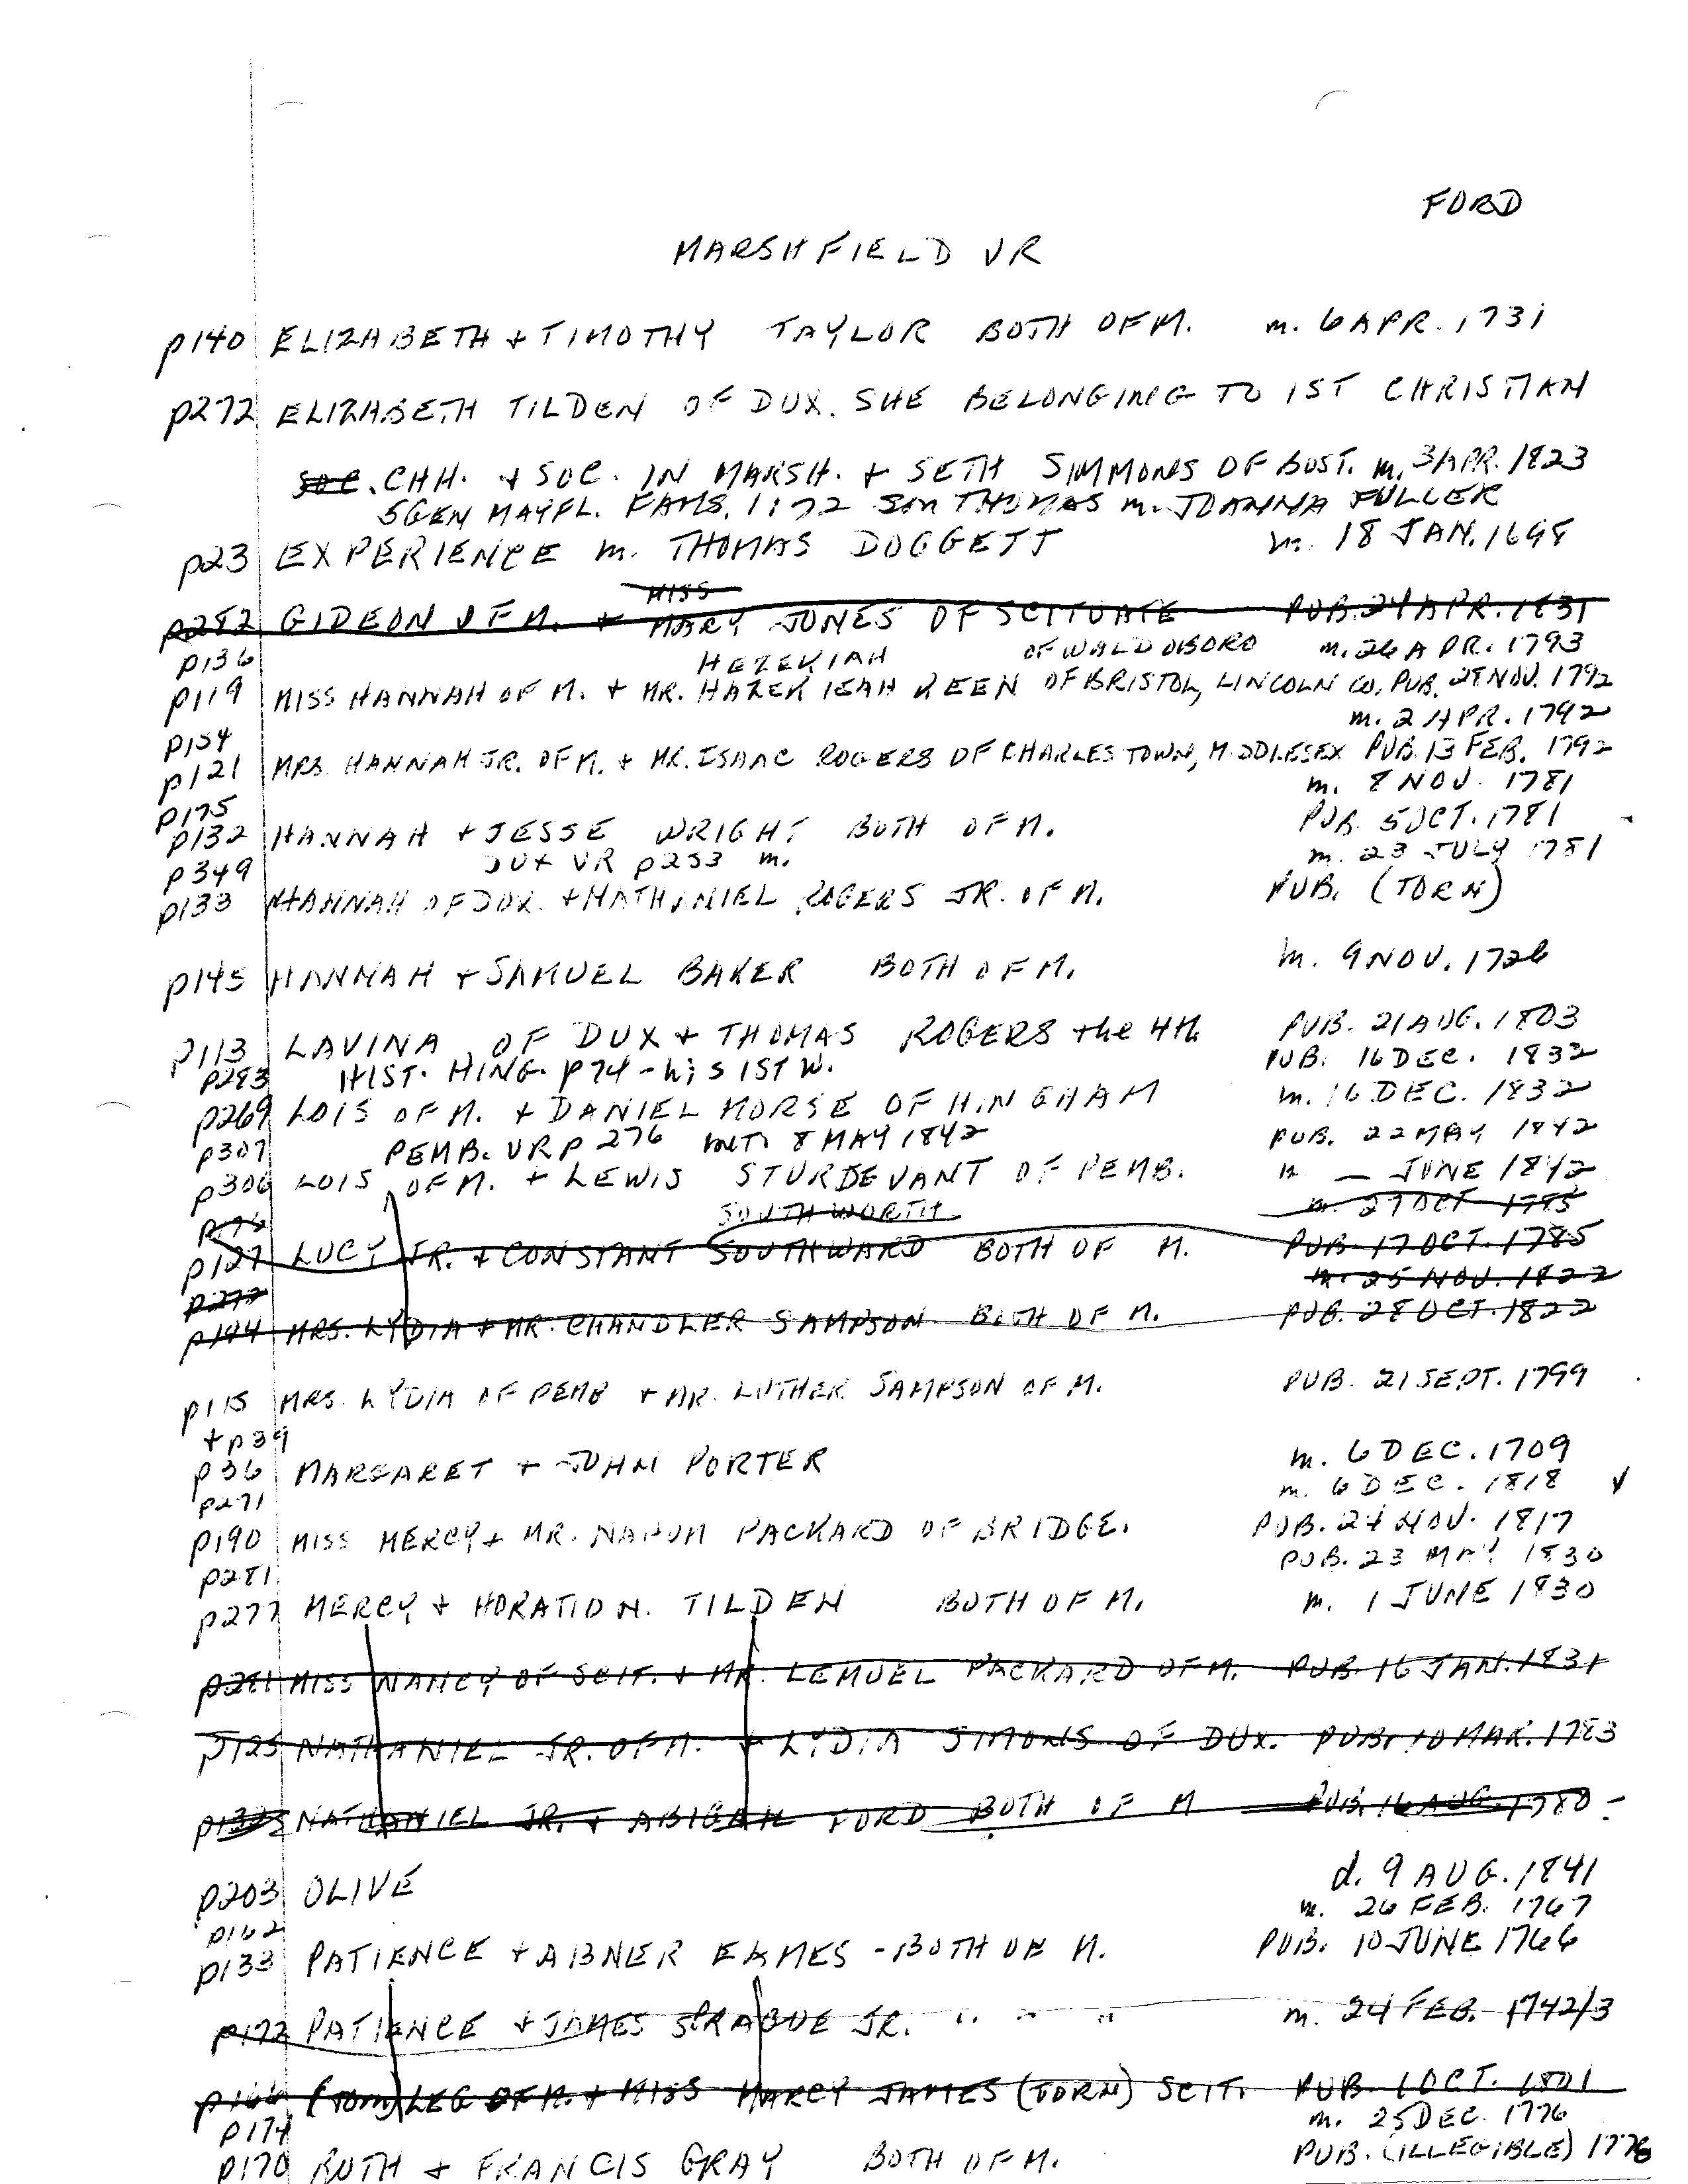 FORD
MARSHFIELD VR
p140 ELIZABETH + TIMOTHY TAYLOR BOTH OF M. m. 6 APR. 1731
p272 ELIZABETH TILDEN OF DUX. SHE BELONGING TO 1ST CHRISTIAN
SOC. CHH. + SOC. IN MARSH. + SETH SIMMONS OF BOST. m. 3 APR. 1823
5GEN MAYFL. FAMS. 1:72 son THOMAS m. JOANNA FULLER
p23 EXPERIENCE m. THOMAS DOGGETT m. 18 JAN. 1698
MISS
p282 GIDEON OF M. + MARY JONES OF SCITUATE PUB. 24 APR. 1831
p136 HEZEKIAH OF WALDOBORO m. 26 APR. 1793
p119 MISS HANNAH OF M. + MR. HAZEKIEAH KEEN OF BRISTOL, LINCOLN CO, PUB. 28 NOV. 1792
p154 m. 2 APR. 1792
p121 MRS. HANNAH JR. OF M. + MR. ISAAC ROGERS OF CHARLESTOWN, MIDDLESEX PUB. 13 FEB. 1792
p175 m. 8 NOV. 1781
p132 HANNAH + JESSE WRIGHT BOTH OF M. PUB. 5 OCT. 1781
p349 DUX VR p253 m. m. 23 JULY 1781
p133 HANNAH OF DUX. + NATHANIEL ROGERS JR. OF M. PUB. (TORN)
p145 HANNAH + SAMUEL BAKER BOTH OF M. m. 9 NOV. 1726
p113 LAVINA OF DUX + THOMAS ROGERS the 4th PUB. 21 AUG. 1803
p283 HIST. HING. p74 - his 1ST W. PUB. 16 DEC. 1832
p269 LOIS OF M. + DANIEL MORSE OF HINGHAM m. 16 DEC. 1832
p307 PEMB. VR p276 INT. 8 MAY 1842 PUB. 22 MAY 1842
p306 LOIS OF M. + LEWIS STURDEVANT OF PEMB. m — JUNE 1842
p76 SOUTHWORTH m. 27 OCT 1785
p127 LUCY JR. + CONSTANT SOUTHWARD BOTH OF M. PUB. 17 OCT. 1785
p272 m. 25 NOV. 1822
p194 MRS. LYDIA + MR. CHANDLER SAMPSON BOTH OF M. PUB. 28 OCT. 1822
p115 MRS. LYDIA OF PEMB + MR. LUTHER SAMPSON OF M. PUB. 21 SEPT. 1799
+ p39
p36 MARGARET + JOHN PORTER m. 6 DEC. 1709
p271 m. 6 DEC. 1818 ✓
p190 MISS MERCY + MR. NAHUM PACKARD OF BRIDGE. PUB. 24 NOV. 1817
p281 PUB. 23 MAY 1830
p277 MERCY + HORATIO N. TILDEN BOTH OF M. m. 1 JUNE 1830
p281 MISS NANCY OF SCIT. + MR. LEMUEL PACKARD OF M. PUB. 16 JAN. 1831
p125 NATHANIEL JR. OF M. + LYDIA SIMONS OF DUX. PUB. 10 MAR. 1783
NATHANIEL JR. + ABIGAIL FORD BOTH OF M PUB. 16 AUG. 1780
p203 OLIVE d. 9 AUG. 1841
p162 m. 26 FEB. 1767
p133 PATIENCE + ABNER EAMES - BOTH OF M. PUB. 10 JUNE 1766
p172 PATIENCE + JAMES SPRAGUE JR. " " " m. 24 FEB. 1742/3
p166 (TORN) LEG OF M. + MISS MARCY JAMES (TORN) SCIT. PUB. 1 OCT. 1801
p174 m. 25 DEC. 1776
p170 RUTH + FRANCIS GRAY BOTH OF M. PUB. (ILLEGIBLE) 1776